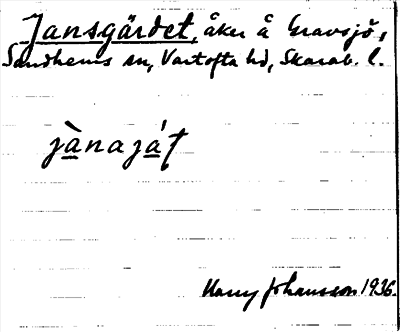 Jansgärdet, åker å Gravsjö,
Sandhems sn, Vartofta hd, Skarab. l.
jànaját
Harry Johansson 1936.